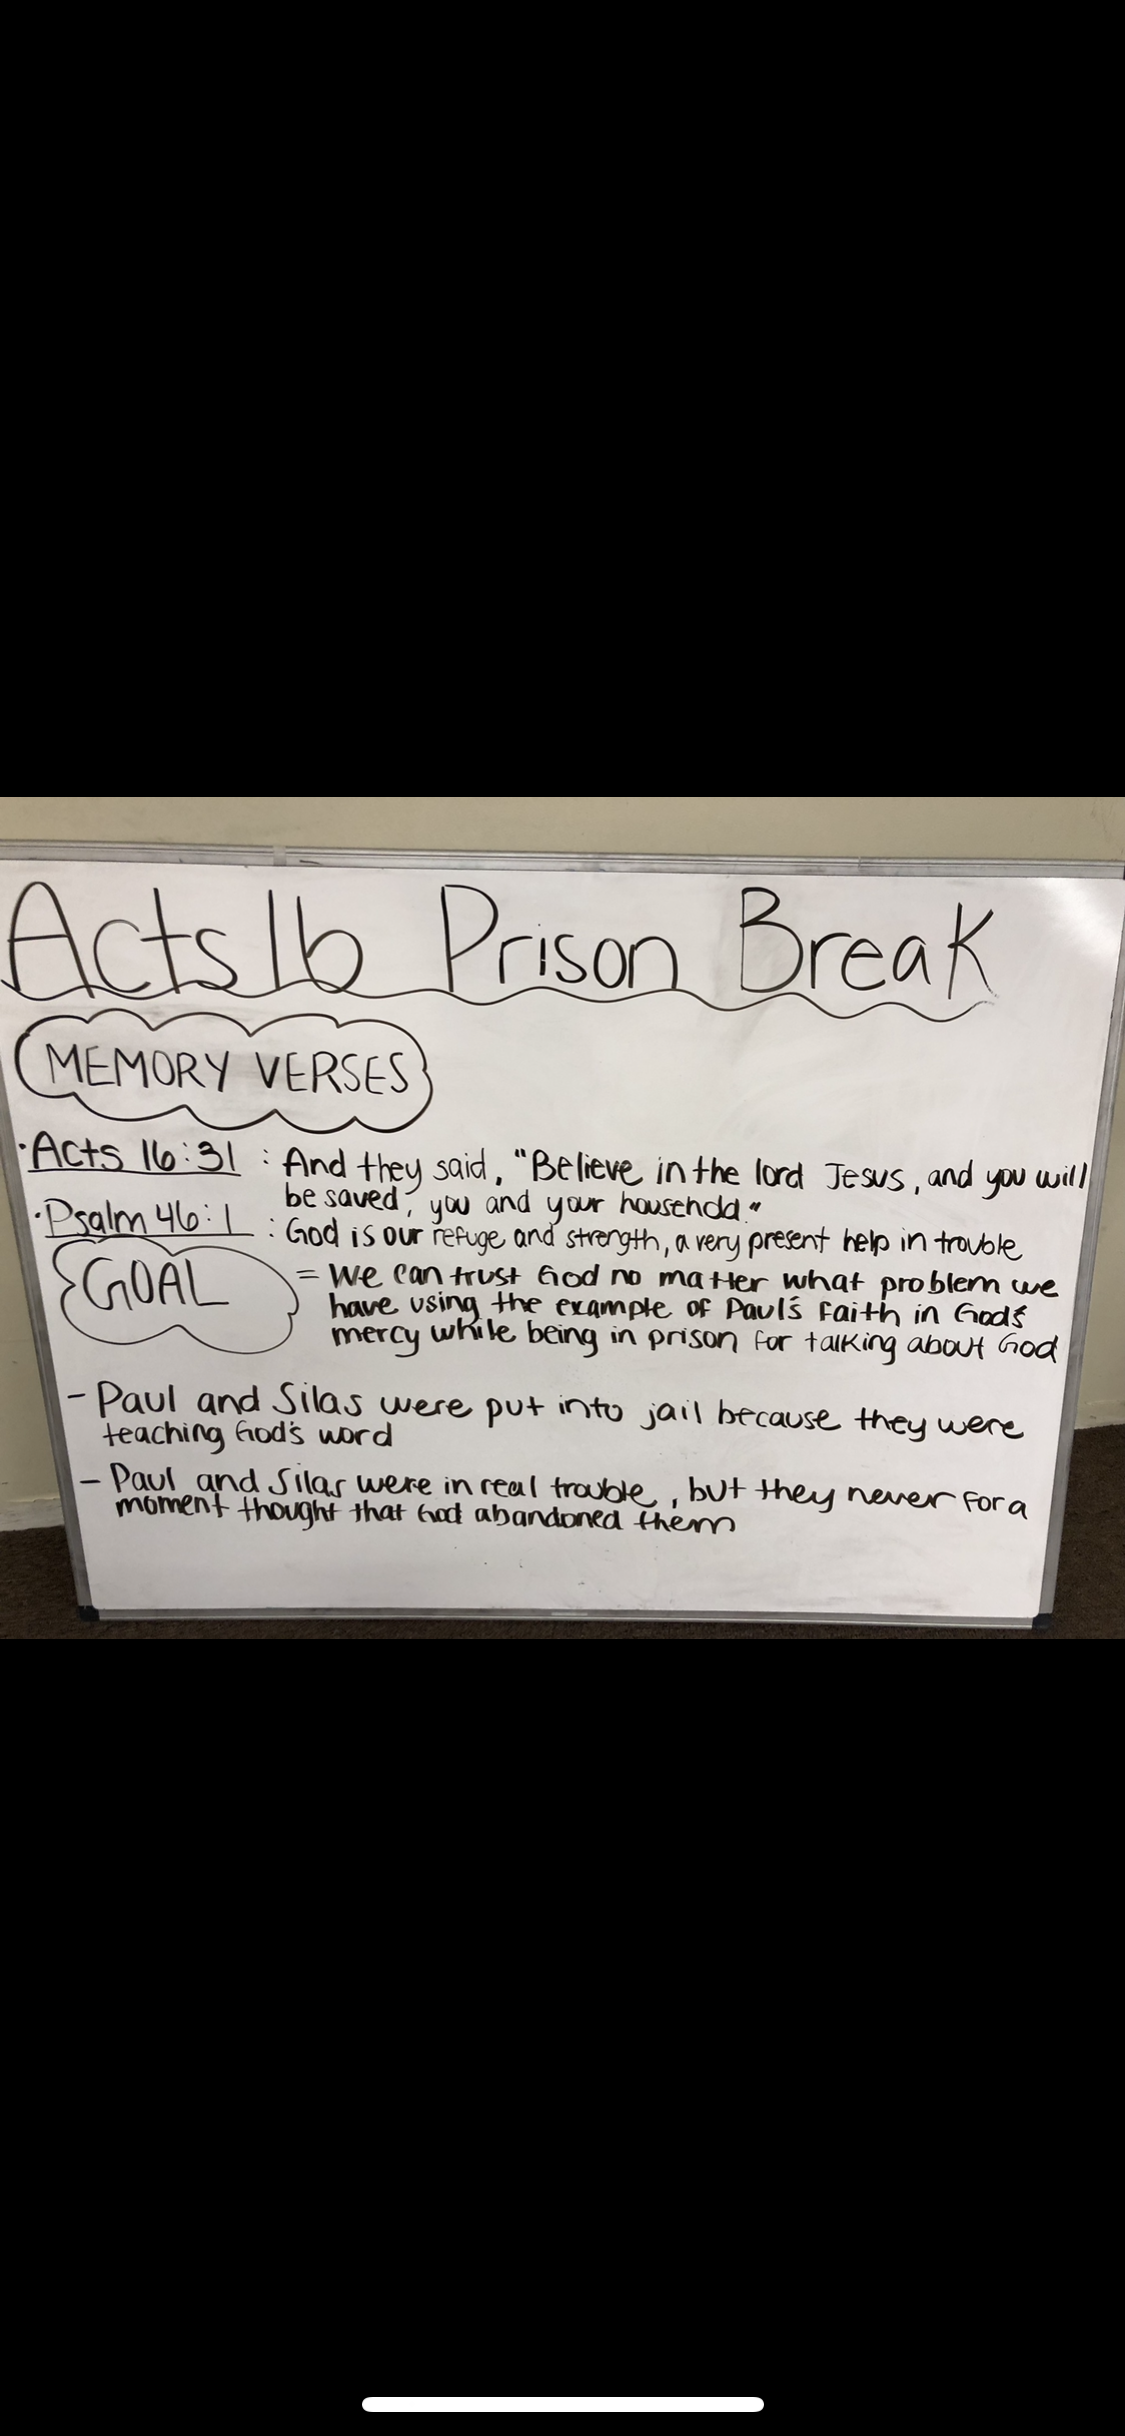 Acts 16 Prison Break
MEMORY VERSES
·Acts 16:31 : And they said, "Believe in the lord Jesus, and you will
be saved, you and your household."
·Psalm 46:1 : God is our refuge and strength, a very present help in trouble
GOAL = We can trust God no matter what problem we
have using the example of Paul's faith in God's
mercy while being in prison for talking about God
- Paul and Silas were put into jail because they were
teaching God's word
- Paul and Silas were in real trouble, but they never for a
moment thought that God abandoned them